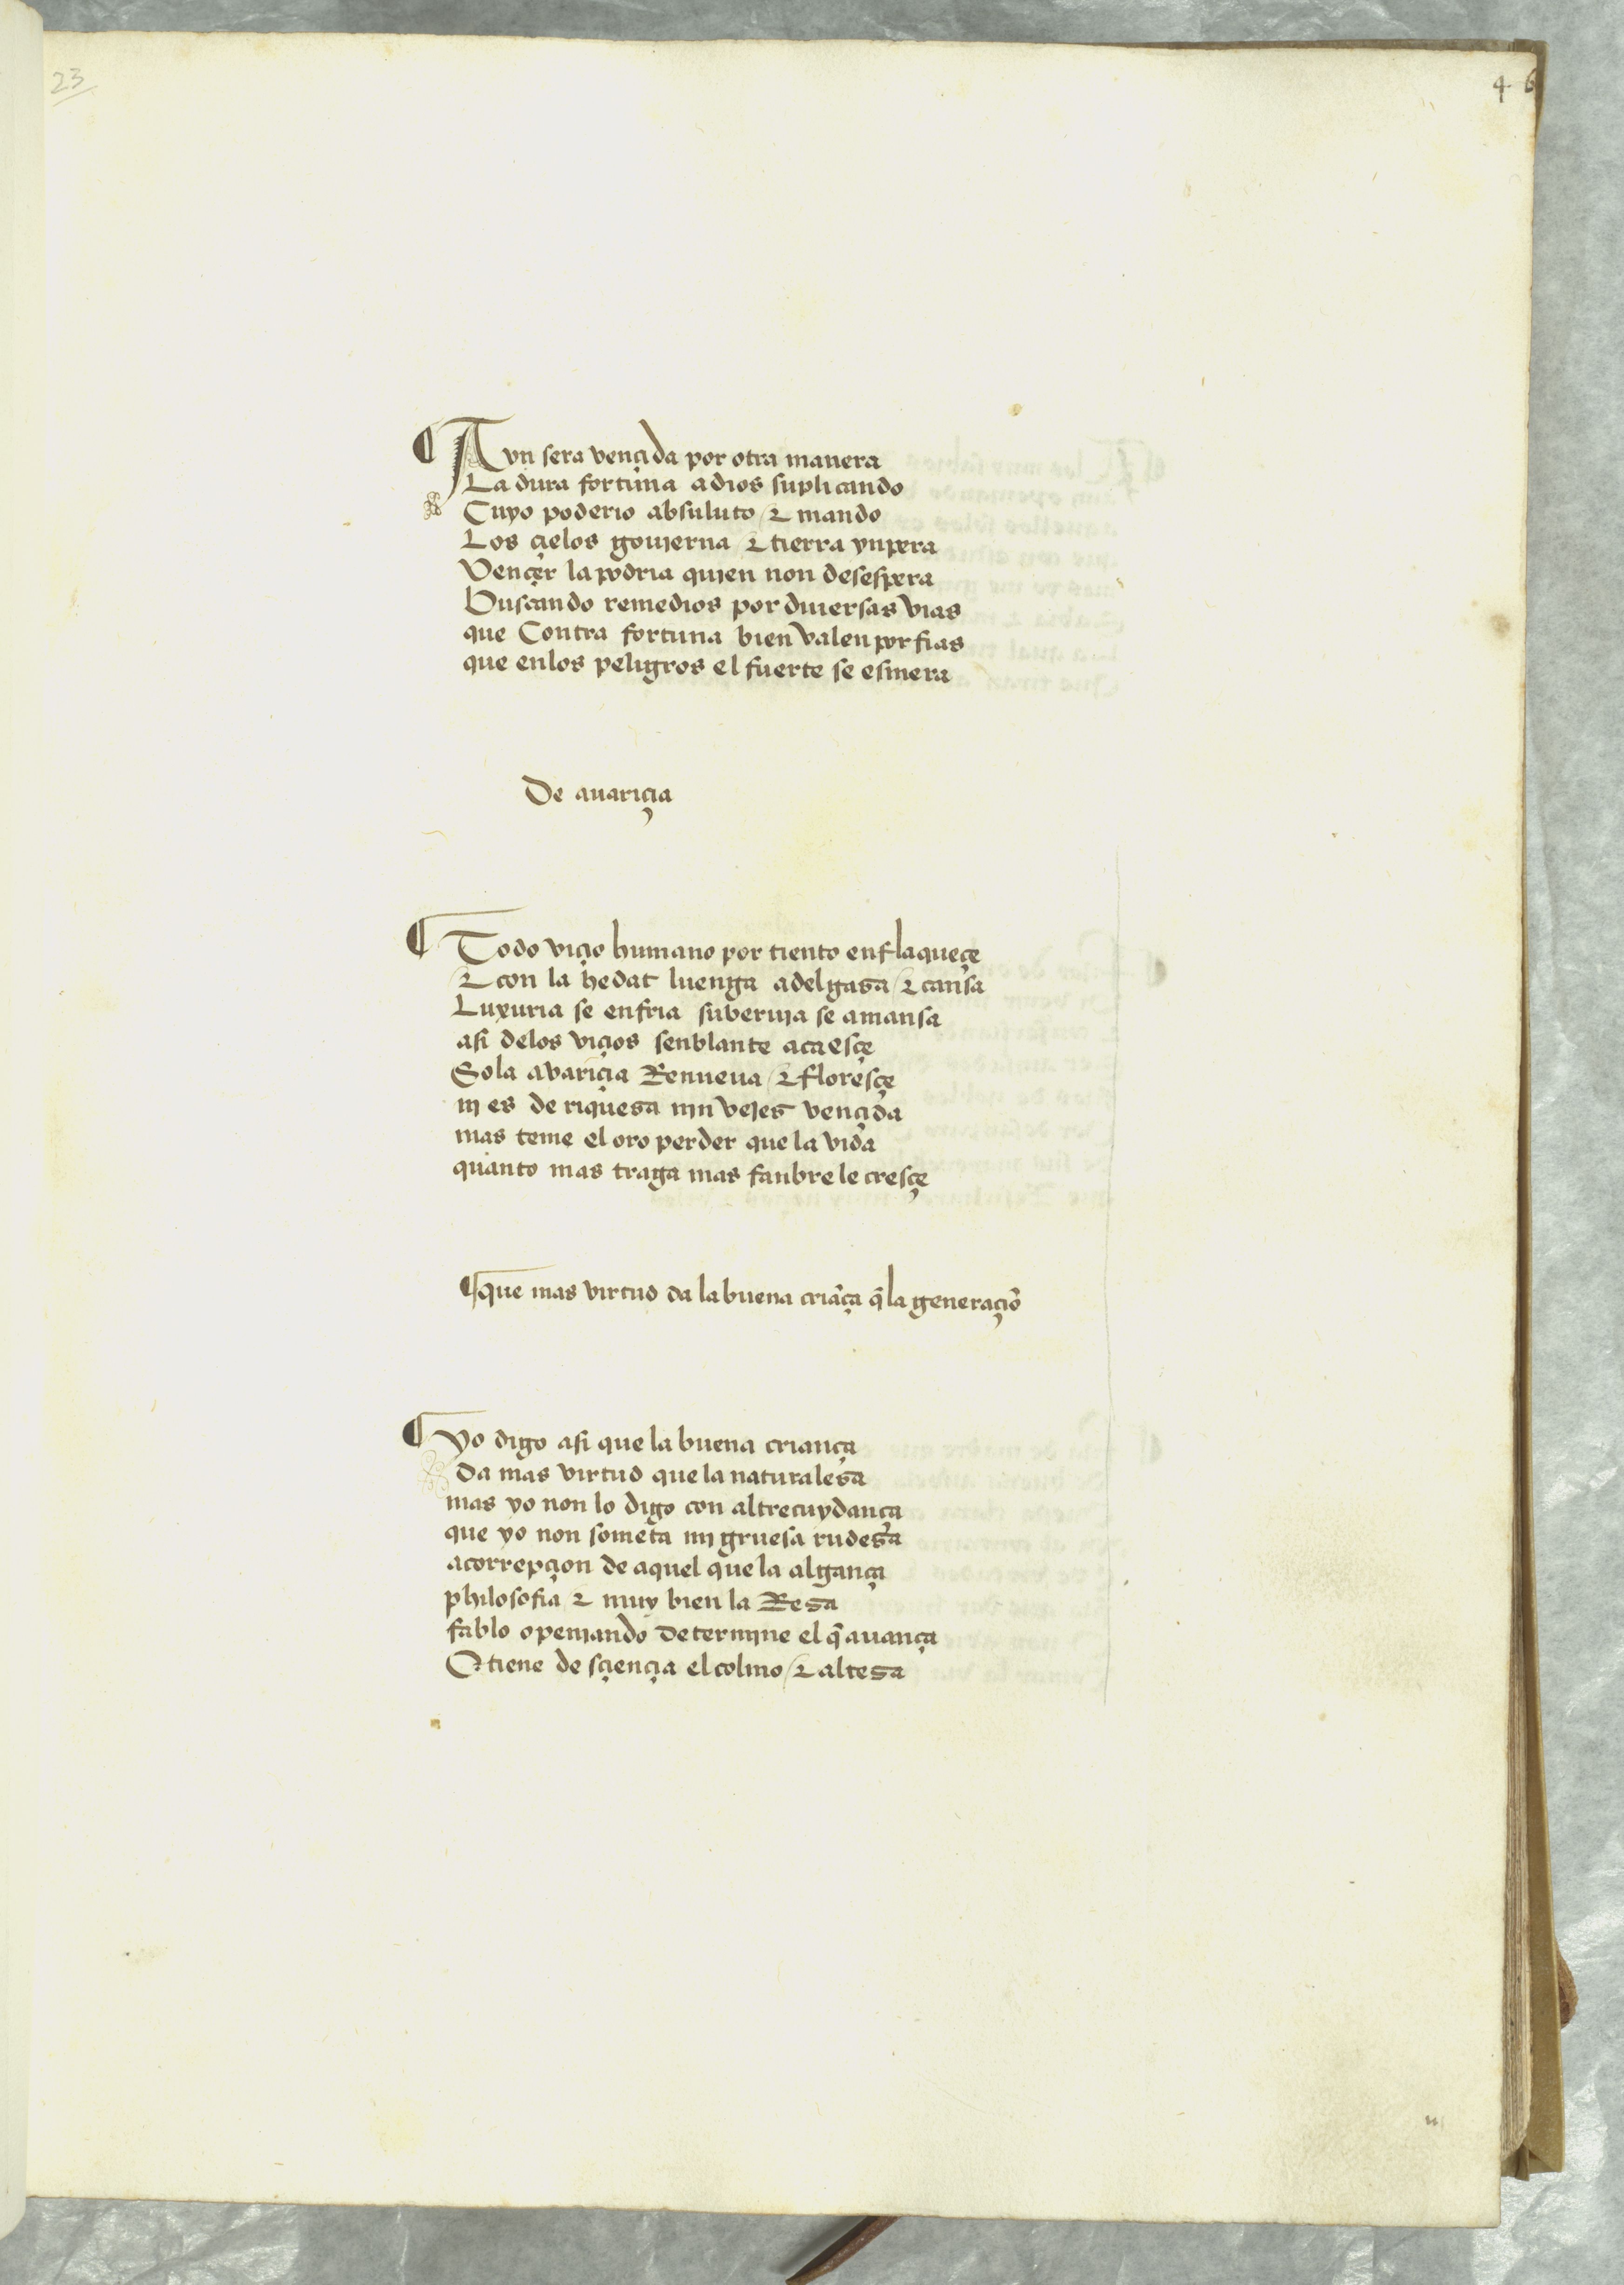 23
4 6
¶ Avn sera vençida por otra manera
La dura fortuna adios suplicando
Cuyo poderio absuluto & mando
Los çielos gouierna & tierra ynpera
Vençer la podria quien non desespera
Buscando remedios por diuersas vias
que Contra fortuna bien valen porfias
que enlos peligros el fuerte se esmera
De auariçia
¶ Todo viçio humano por tiento enflaqueçe
& con la hedat luenga adelgasa & cansa
Luxuria se enfria suberuia se amansa
asi delos viçios senblante acaesçe
Sola avariçia Renueua & floresçe
ni es de riquesa nin vejes vençida
mas teme el oro perder que la vida
quanto mas traga mas fanbre le cresçe
¶ que mas virtud da la buena criãça q̃ la generaçiõ
¶ Yo digo asi que la buena criança
da mas virtud que la naturalesa
mas yo non lo digo con altrecuydança
que yo non someta mi gruesa rudesa
acorrepçion de aquel que la algança
philosofia & muy bien la Resa
fablo openiando determine el q̃ auança
O tiene de sçiençia el colmo & altesa